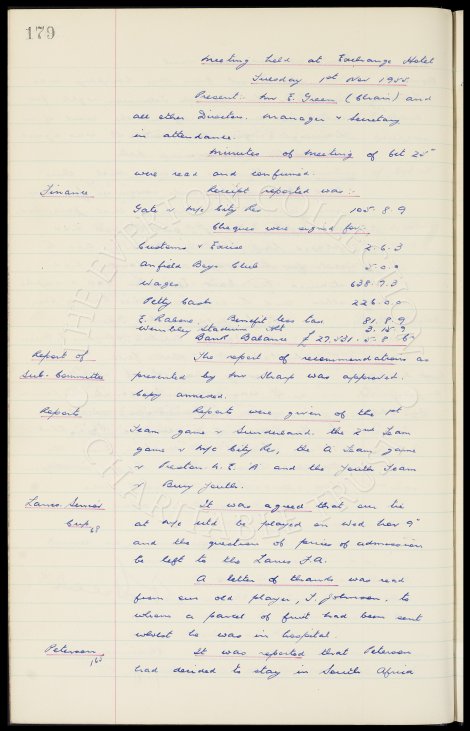 179
Meeting held at Exchange Hotel
Tuesday 1st Nov 1955
Present:- Mr E. Green (Chair) and
all other Directors. Manager & Secretary
in attendance.
Minutes of Meeting of Oct 25th
were read and confirmed.
Finance
Receipt reported was:-
Gate v M/c City Res 105. 8. 9
Cheques were signed for:-
Customs & Excise 2. 6. 3
Anfield Boys Club 5. 0. 0
Wages 638. 9. 3
Petty Cash 226. 0. 0
Benefit less tax 81. 8. 9
Wembley Stadium 3. 15. 9
Bank Balance £ 27,531. 5. 8
Report of
Sub-Committee
The report of recommendations as
presented by Mr Sharp was approved.
Copy annexed.
Report
Reports were given of the 1st
Team game v Sunderland. the 2nd Team
game v M/c City Res, the A Team game
v Preston N. E. A and the Youth Team
v Bury Youth.
Lancs. Senior
Cup 68
It was agreed that our tie
at M/c Utd be played on Wed Nov 9th
and the question of prices of admission
be left to the Lancs F.A.
A letter of thanks was read
from our old player, T. Johnson, to
whom a parcel of fruit had been sent
whilst he was in hospital.
Peterson
It was reported that Peterson
had decided to stay in South Africa
THE EVERTON COLLECTION
CHARITABLE TRUST